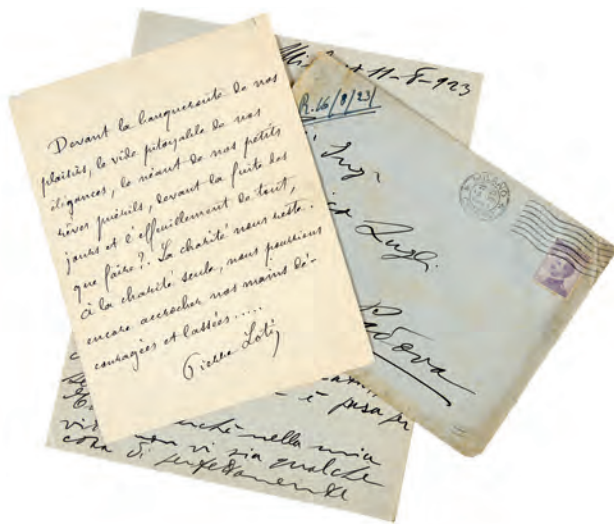 Devant la banqueroute de nos
plaisirs, le vide pitoyable de nos
élégances, le néant de nos petits
rêves puérils, devant la fuite des
jours et l'effeuillement de tout,
que faire?. La charité nous reste.
à la charité seule, nous pourrions
encore accrocher nos mains dé-
couragées et lassées.....
Pierre Loti
11-8-923
R. 16/8/23
Luigi
Padova
è
nella mia
non vi sia qualche
cosa di perfettamente